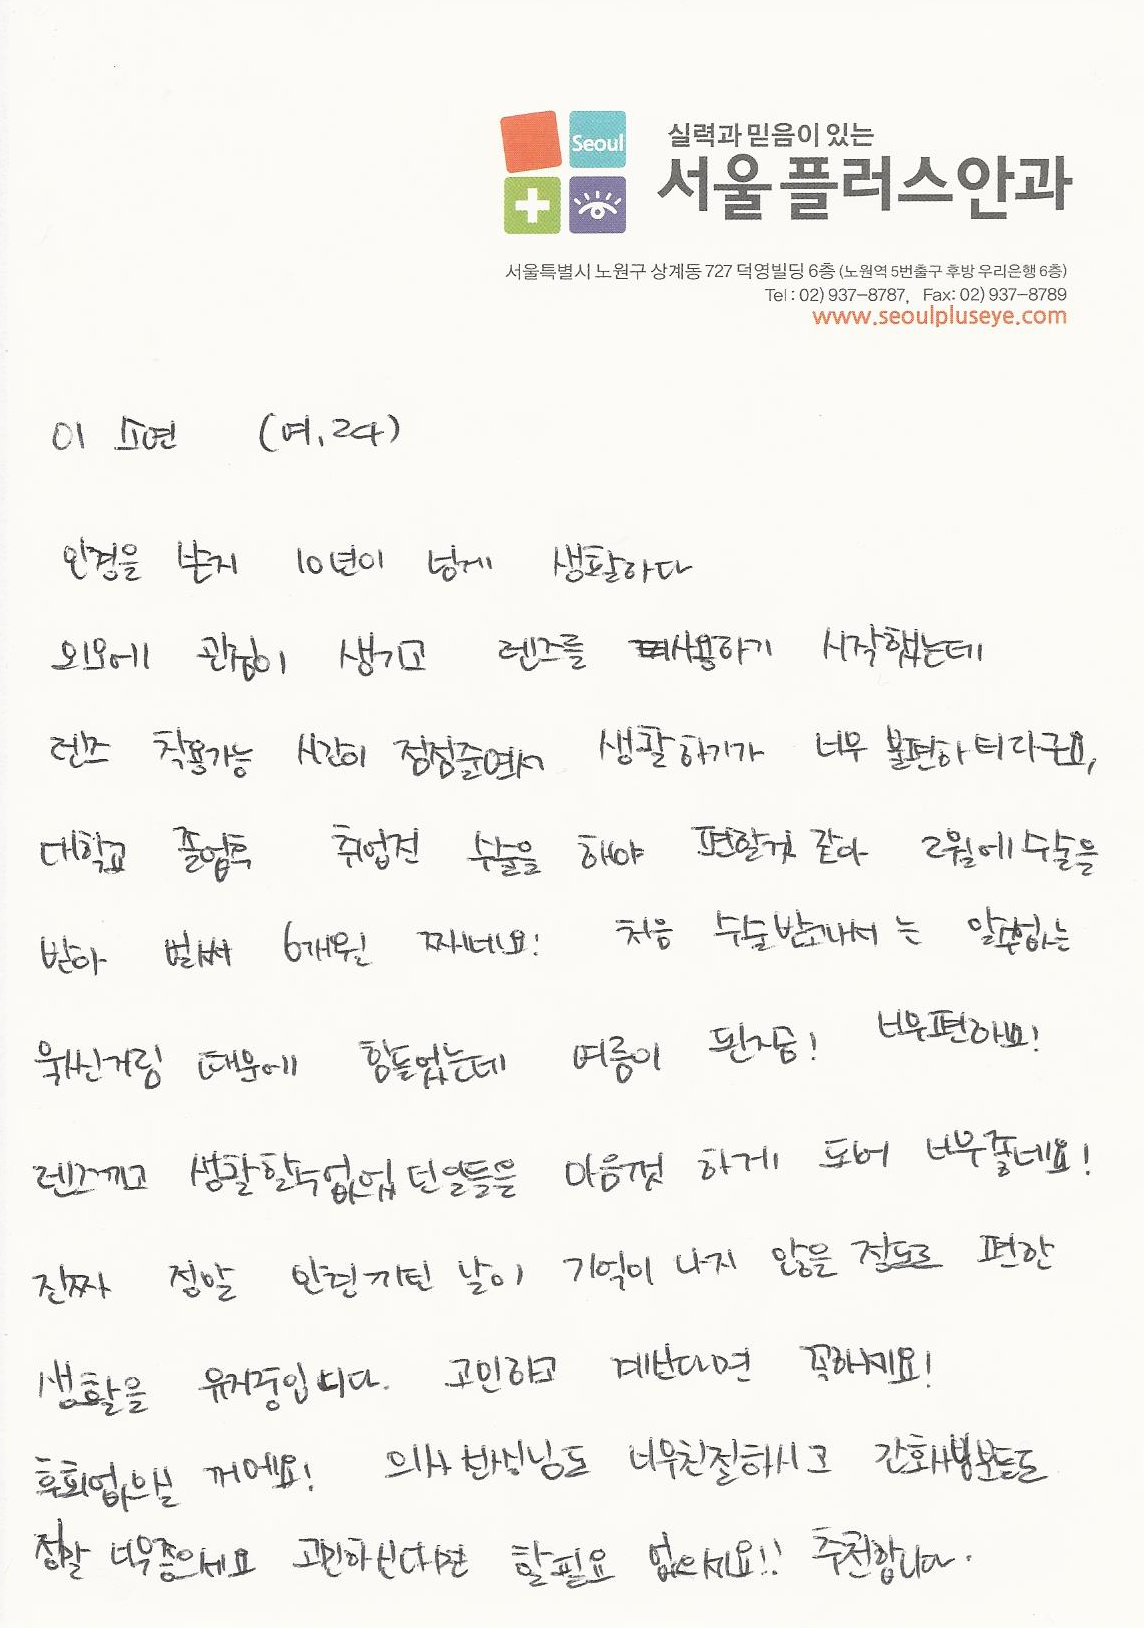 Seoul
실력과 믿음이 있는
서울플러스안과
서울특별시 노원구 상계동 727 덕영빌딩 6층 (노원역 5번출구 후방 우리은행 6층)
Tel : 02) 937-8787,  Fax: 02) 937-8789
www.seoulpluseye.com
이 소연 (여, 24)
안경을 쓴지 10년이 넘게 생활하다
외모에 관심이 생기고 렌즈를 사용하기 시작했는데
렌즈 착용가능 시간이 점점줄면서 생활하기가 너무 불편하더라구요,
대학교 졸업후 취업전 수술을 해야 편할것 같아 2월에 수술을
받아 벌써 6개월 째네요! 처음 수술받고나서는 말수없는
욱신거림 때문에 힘들었는데 여름이 된지금! 너무편해요!
렌즈끼고 생활할수없었던일들을 마음껏 하게 되어 너무좋네요!
진짜 정말 안경끼던 날이 기억이 나지 않을 정도로 편한
생활을 유지중입니다. 고민하고 계신다면 꼭하세요!
후회없으실 거에요! 의사선생님도 너무친절하시고 간호사분들도
정말 너무좋으세요 고민하신다면 할필요 없으세요!! 추천합니다.